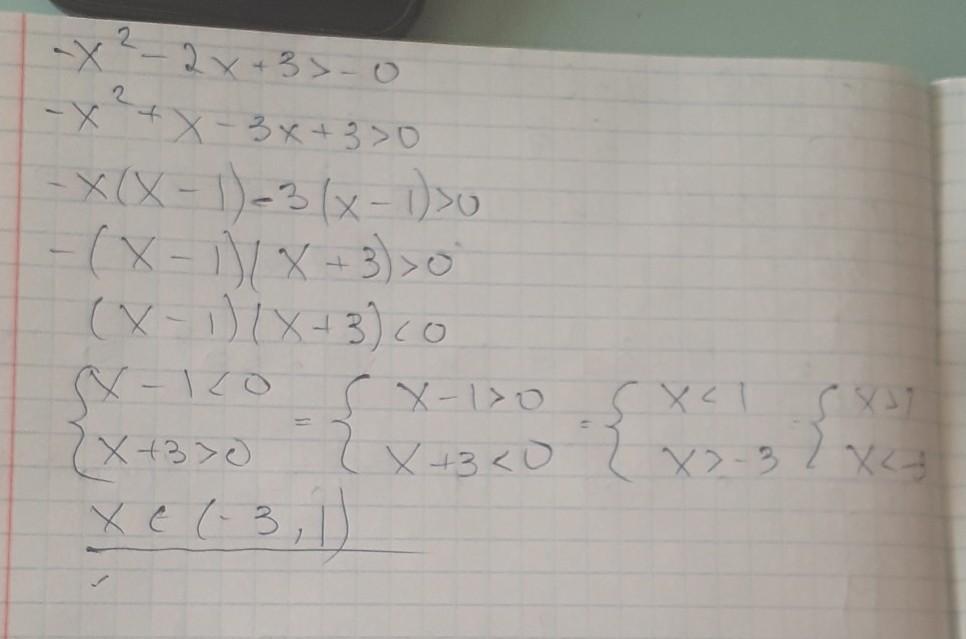 -x² - 2x + 3 > - 0
-x² + x - 3x + 3 > 0
-x(x - 1) - 3(x - 1) > 0
-(x - 1)(x + 3) > 0
(x - 1)(x + 3) < 0
{x - 1 < 0 = {x - 1 > 0 = {x < 1 - {x > 1
{x + 3 > 0 {x + 3 < 0 {x > -3 {x < -3
x ∈ (-3, 1)